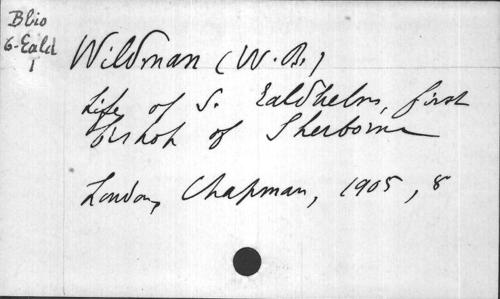 Blio
6-Eald
1
Wildman (W. B.)
Life of S. Ealdhelm, first
bishop of Sherborne
London, Chapman, 1905, 8